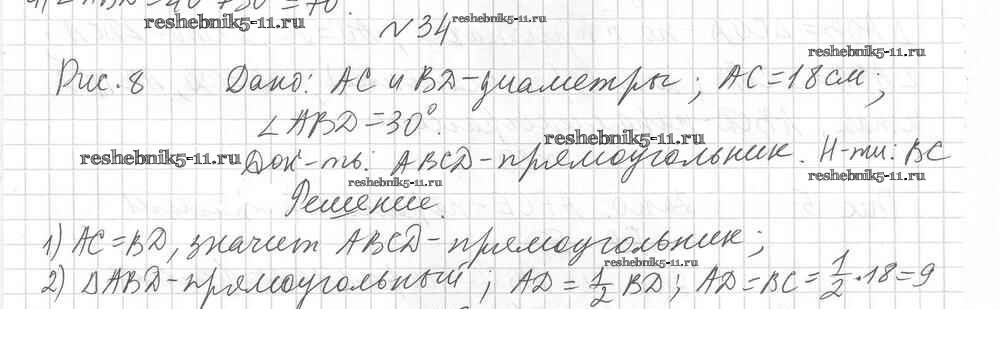 4) ∠ABD = 40° + 30° = 70°.
reshebnik5-11.ru
№34
reshebnik5-11.ru
reshebnik5-11.ru
Рис. 8 Дано: AC и BD-диаметры; AC=18см;
∠ABD=30°.
reshebnik5-11.ru
reshebnik5-11.ru
Док-ть: ABCD-прямоугольник. Н-ти: BC
reshebnik5-11.ru
reshebnik5-11.ru
Решение.
1) AC=BD, значит ABCD-прямоугольник;
reshebnik5-11.ru
2) ΔABD-прямоугольный; AD = 1/2 BD; AD=BC= 1/2 · 18=9